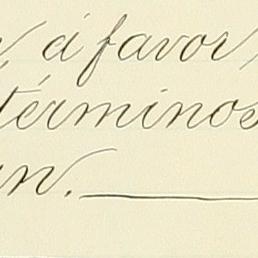 á favor
términos